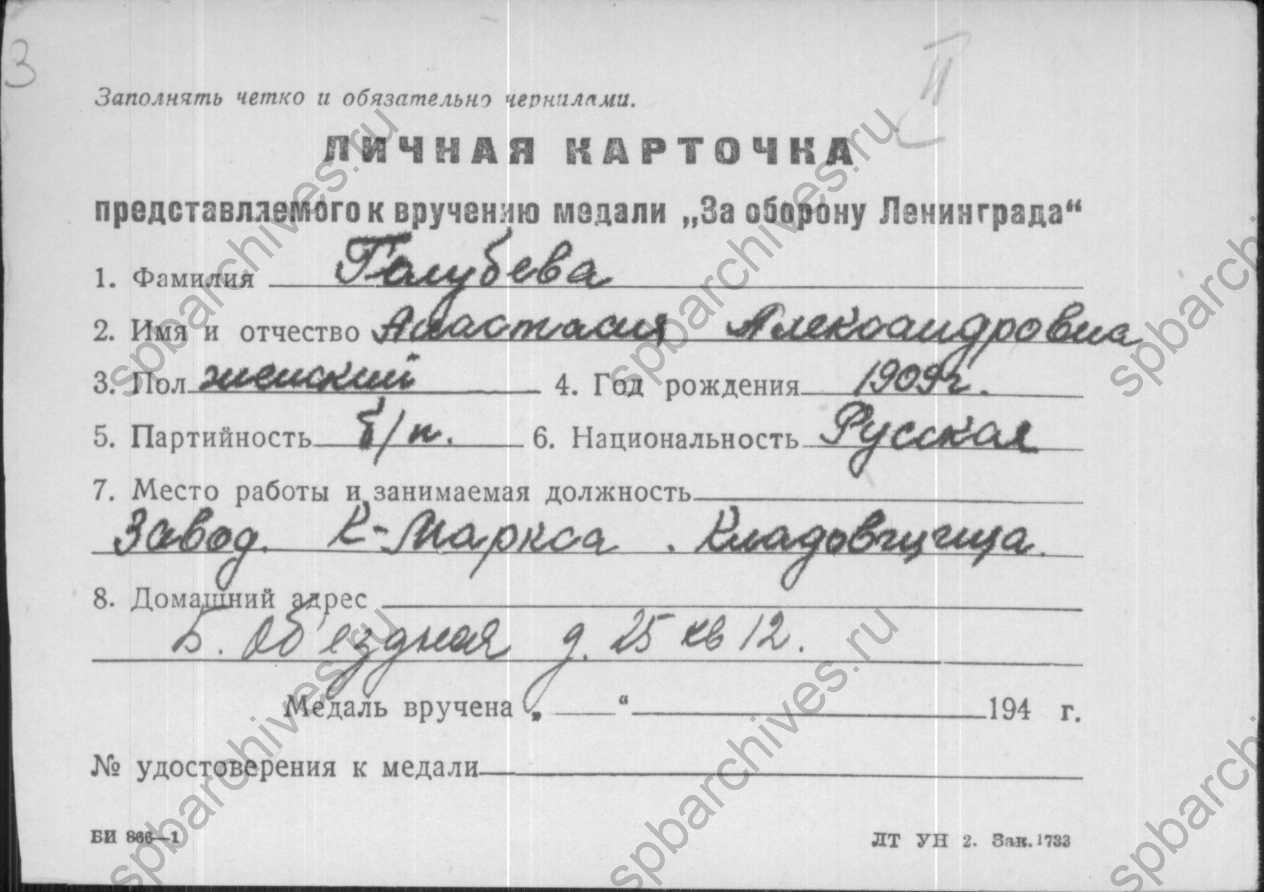 3
II
Заполнять четко и обязательно чернилами.
ЛИЧНАЯ КАРТОЧКА
представляемого к вручению медали „За оборону Ленинграда“
1. Фамилия Голубева
2. Имя и отчество Анастасия Александровна
3. Пол женский 4. Год рождения 1909 г.
5. Партийность б/п. 6. Национальность Русская
7. Место работы и занимаемая должность
Завод. К-Маркса. Кладовщица.
8. Домашний адрес
Б. Объездная д. 25 кв 12.
Медаль вручена „ “ 194 г.
№ удостоверения к медали
БИ 866—1 ЛТ УН 2. Зак. 1733
spbarchives.ru
spbarchives.ru
spbarchives.ru
spbarchives.ru
spbarchives.ru
spbarchives.ru